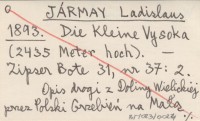 JÁRMAY Ladislaus
1893. Die Kleine Vysoka
(2435 Meter hoch). —
Zipser Bote 31, nr 37: 2.
Opis drogi z Doliny Wielickiej
przez Polski Grzebień na Małą